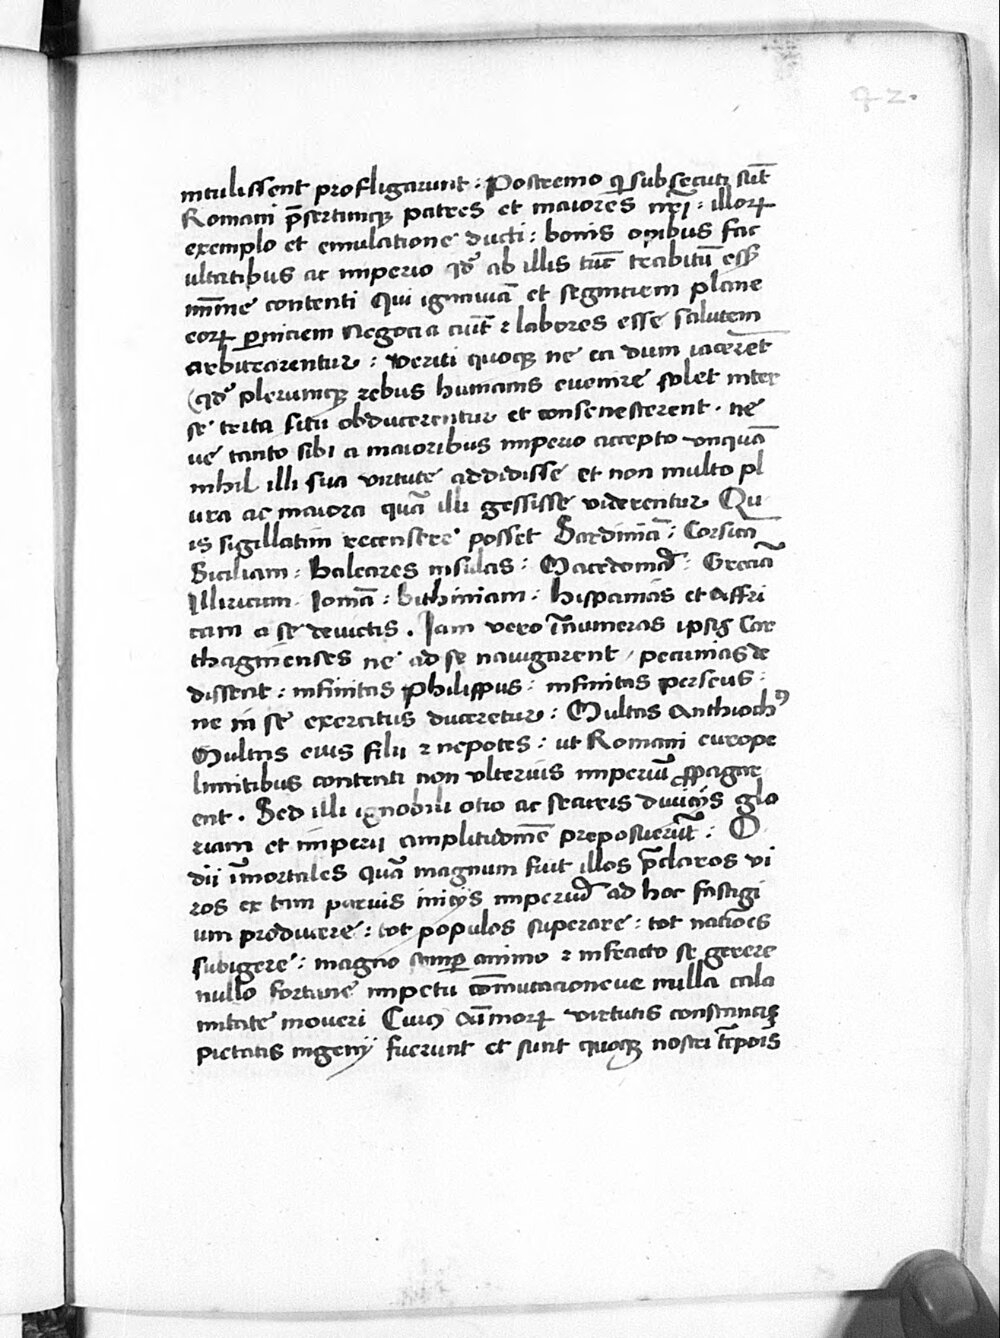 42.
intulissent profligarunt : Postremo q̄ subsecuti sūt
Romani p̄sertimq; patres et maiores nr̄i : illoꝝ
exemplo et emulatione ducti : bonis om̄ibus fac
ultatibus ac imperio qd̄ ab illis tūc traditū ess̄
mīme contenti Qui ignauiā et segniciem plane
eoꝝ ꝑniciem Negocia aūt ⁊ labores esse salutem
arbitrarentur : veriti quoq; ne ea dum iacerēt
(qd̄ plerumq; rebus humanis euenire solet inter
se trita situ obducerentur et consenescerent . ne
ue tanto sibi a maioribus imperio accepto vnquā
nihil illi sua virtute addidisse et non multo pl
ura ac maiora quā illi gessisse viderentur Qu
is sigillatim recensere posset Sardiniā : Corsicā
Siciliam : Baleares insulas : Macedoniā : Greciā
Illiricum . Ioniā : bithiniam : hispanias et Affri
cam a se deuictis . Iam vero īnumeras ipsis Car
thaginenses ne ad se nauigarent / pecunias de
dissent : infinitas Philippus : infinitas perseus :
ne in se exercitus duceretur : Multas Anthiochꝰ
Multas eius filii ⁊ nepotes : ut Romani europe
limitibus contenti non vlterius imperiū ꝓpagar
ent . Sed illi ignobili otio ac securis diuitijs glo
riam et imperii amplitudinē preposuerūt : O
dii īmortales quā magnum fuit illos p̄claros vi
ros ex tam paruis initijs imperiū ad hoc fastigi
um producere : tot populos superare : tot natiōes
subigere : magno semꝑ animo ⁊ infracto se gerere
nullo fortune impetu cōmutacioneue nulla cala
mitate moueri Cuiꝰ Aīmoꝝ virtutis constancie
pietatis ingenij fuerunt et sunt quoq; nostri tēpoīs